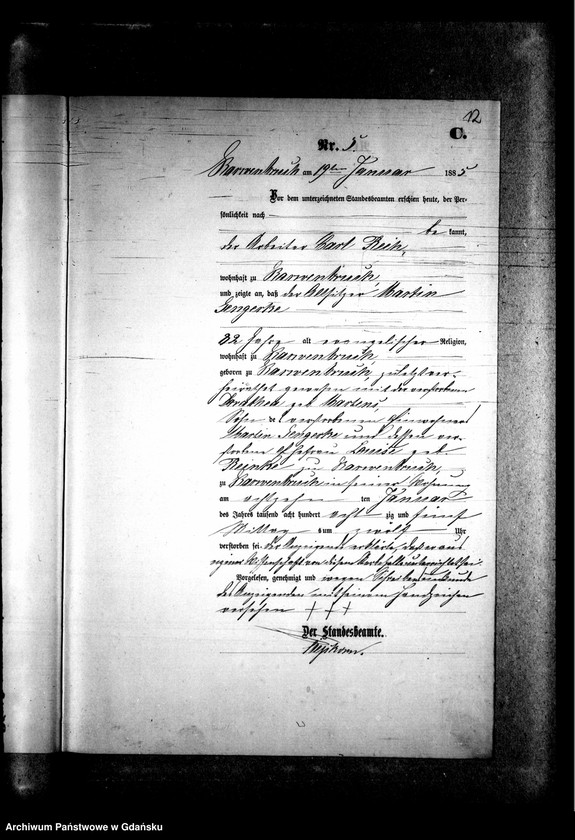 12
C.
Nr. 5.
Barwenbruch am 19ten Januar 1885
Vor dem unterzeichneten Standesbeamten erschien heute, der Per-
sönlichkeit nach
be kannt,
der Arbeiter Carl Reik,
wohnhaft zu Barwenbruch,
und zeigte an, daß der Altsitzer Martin
Gengerke
82 Jahre alt evangelischer Religion,
wohnhaft zu Barwenbruch,
geboren zu Barwenbruch, zuletzt ver-
heirathet gewesen mit der verstorbenen
Dorothea geb Martens,
Sohn des verstorbenen Einwohners
Martin Gengerke und dessen ver-
storbene Ehefrau Louise geb
Reinke zu Barwenbruch,
zu Barwenbruch in seiner Wohnung
am achtzehn ten Januar
des Jahres tausend acht hundert acht zig und fünf
Mittag s um zwölf Uhr
verstorben sei. der Anzeigende erklärte, daß er aus
eigener Wissenschaft von diesem Sterbefalle unterrichtet sei.
Vorgelesen, genehmigt und wegen Schreibensunkunde
des Anzeigenden mit seinem Handzeichen
versehen + + +
Der Standesbeamte.
Archiwum Państwowe w Gdańsku